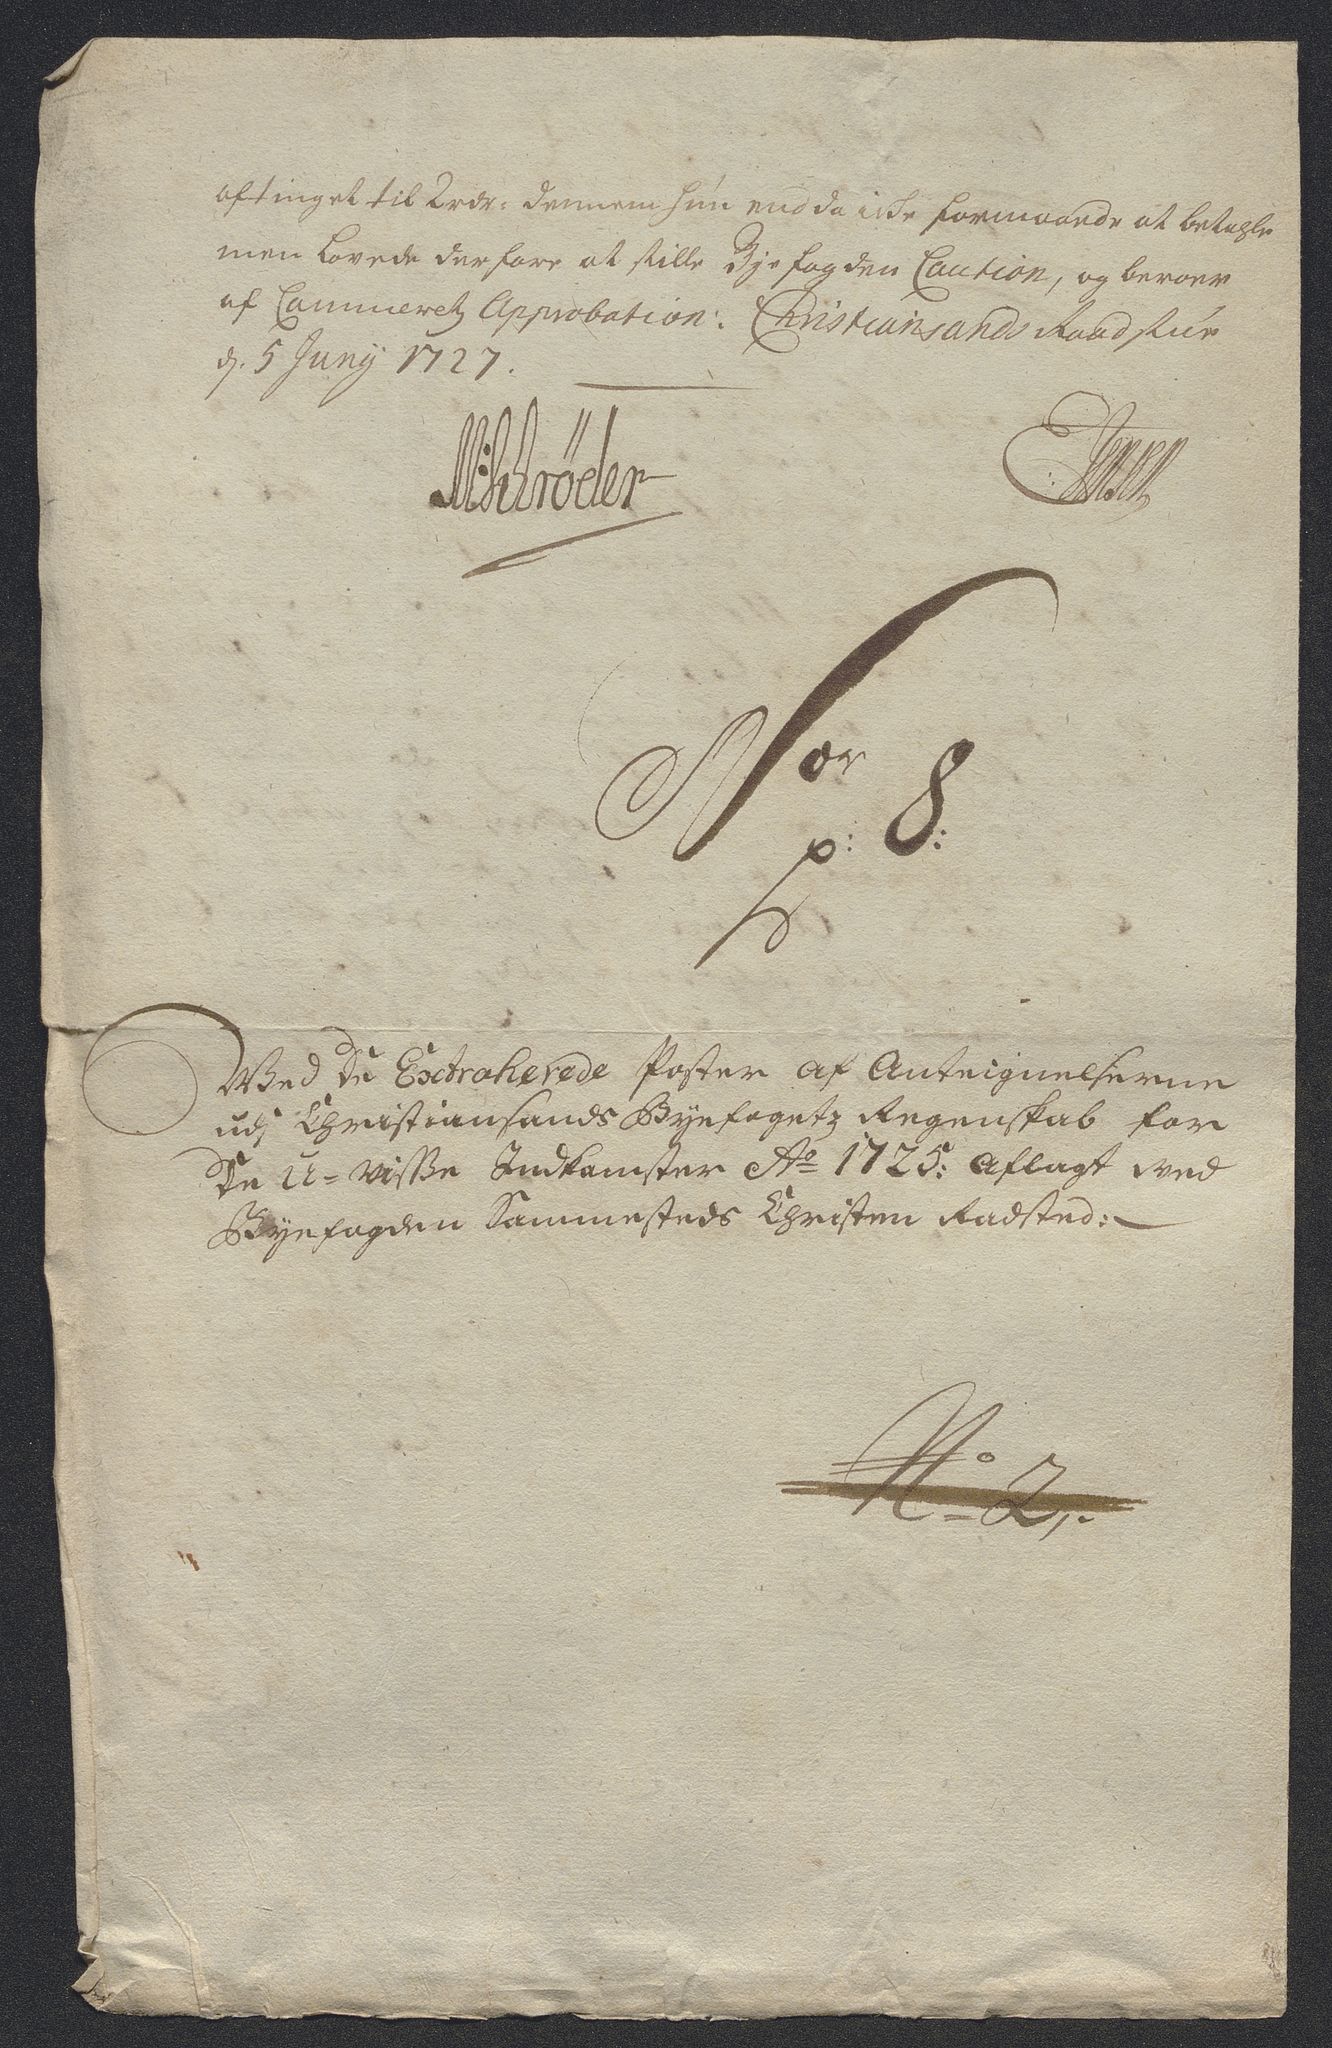 aftinget til 2 rdr: dennem hun endda icke formaaede at betahle
men lovede derfore at stille Byefogden Caution, og beroer
af Cammeretz Approbation: Christiansands Raadstue
d. 5 Junij 1727.
MSchrøder
Nor
p: 8:
Wed de Extraherede Poster af Anteignelserne
udj Christiansands Byefogetz Regenskab for
de u=visse Indkomster Ao 1725: aflagt ved
Byefogden Sammesteds Christen Radsted:
No 2,